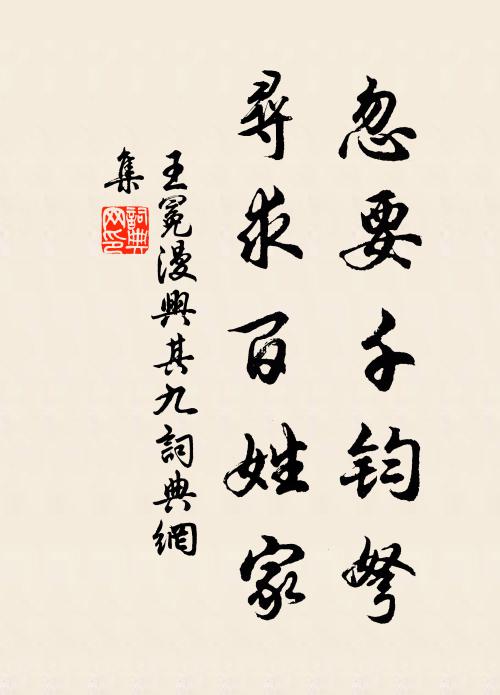 忽要千钧弩
尋求百姓家
王冕漫興其九詞典網
集
詞典
网印